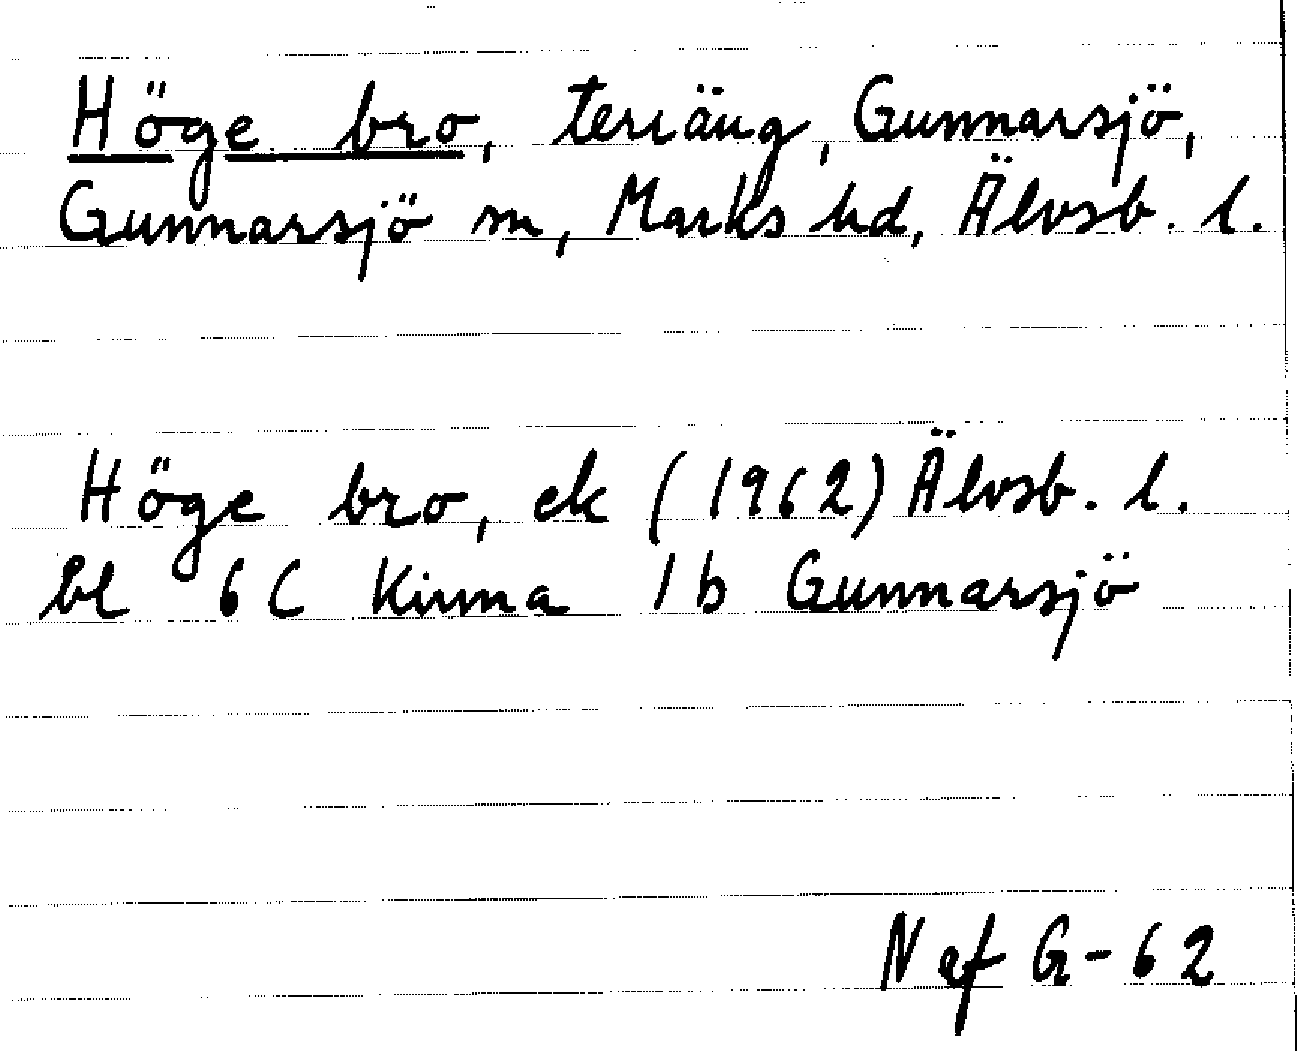 Höge bro, terräng, Gunnarsjö,
Gunnarsjö sn, Marks hd, Älvsb. l.
Höge bro, ek (1962) Älvsb. l.
bl 6 C Kinna 1 b Gunnarsjö
Naf G-62